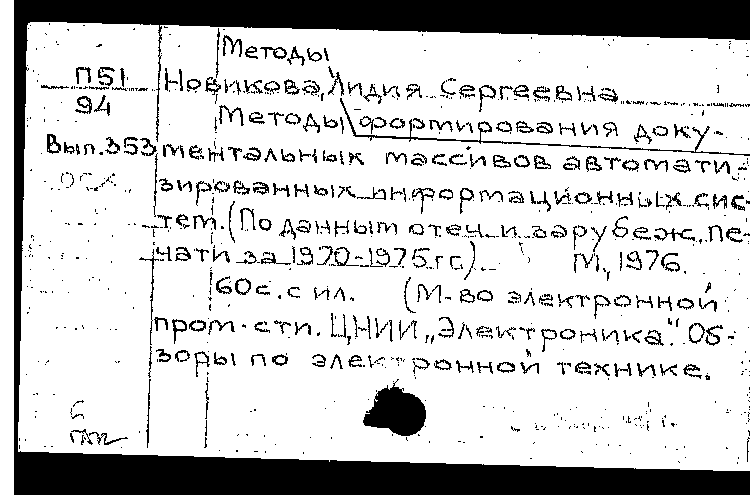 Методы
П51
94
Новикова, Лидия Сергеевна
Методы формирования доку-
Вып.353
ментальных массивов автомати-
зированных информационных сис-
тем. (По данным отеч. и зарубеж. пе-
чати за 1970-1975 гг.). М., 1976.
60с. с ил. (М-во электронной
пром-сти. ЦНИИ „Электроника“. Об-
зоры по электронной технике.